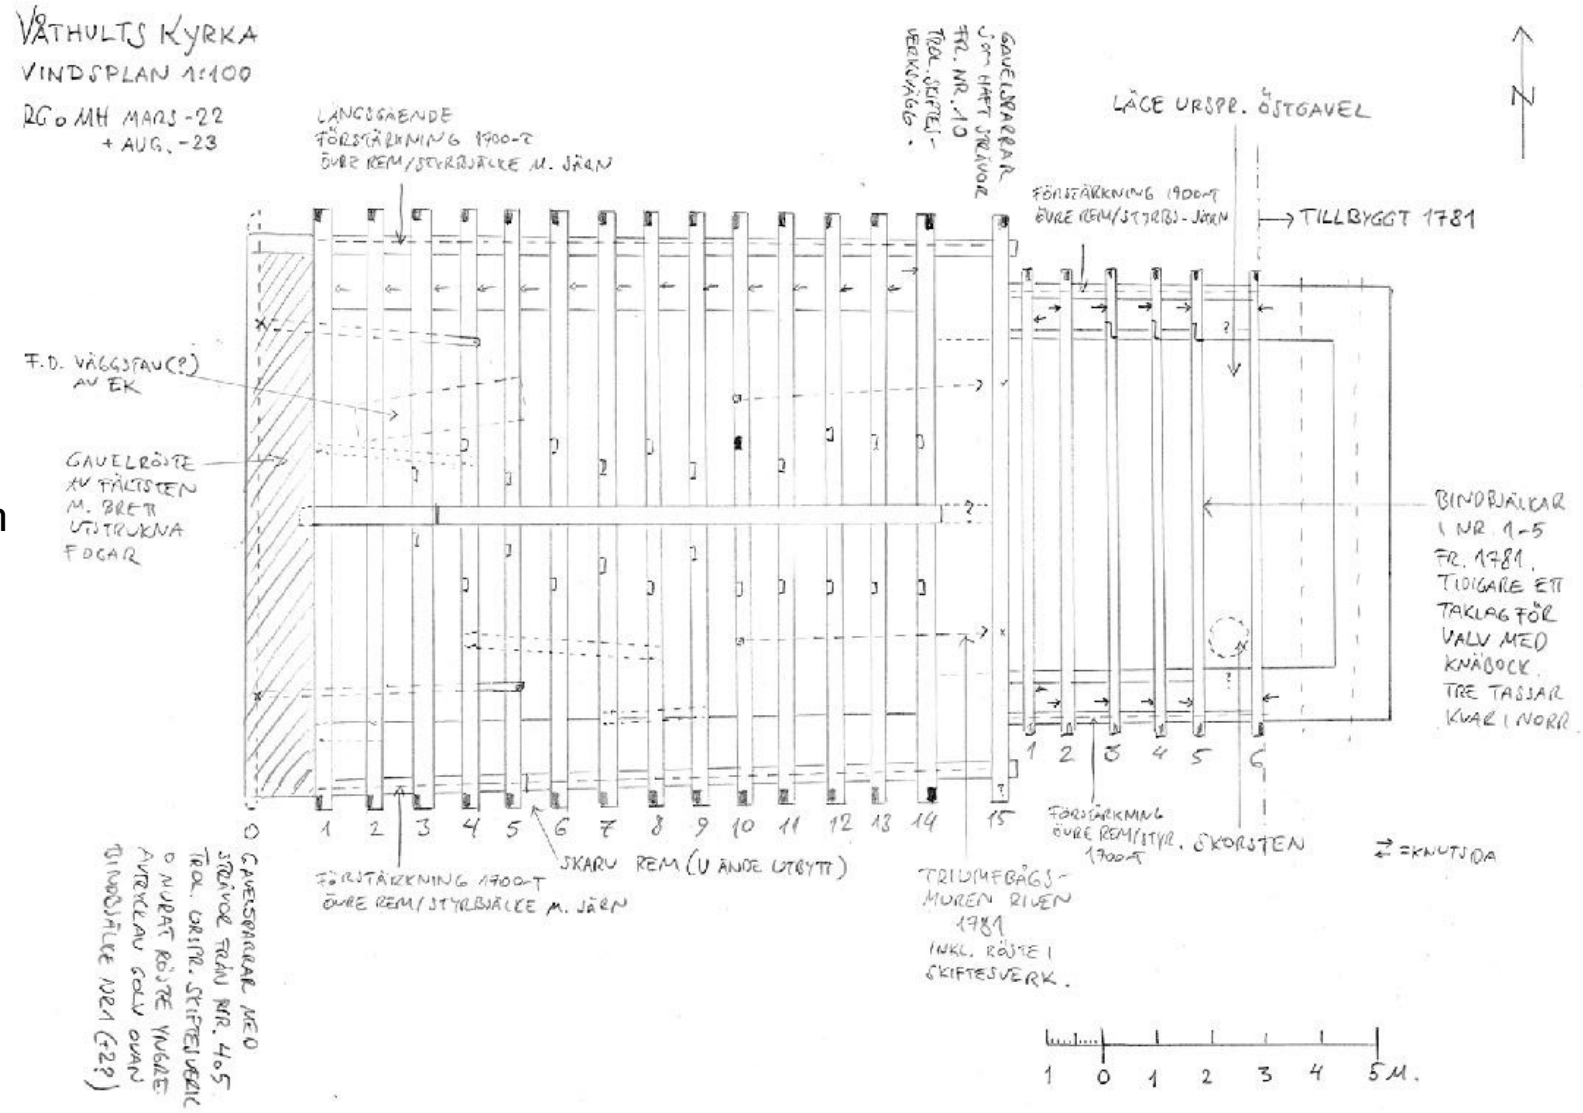 VÅTHULTS KYRKA
VINDSPLAN 1:100
RG o MH MARS -22
+ AUG. -23
LÄNGSGÅENDE
FÖRSTÄRKNING 1700-T
ÖVRE REM/STYRBJÄLKE M. JÄRN
GAVELSPARRAR
SOM HAFT STRÄVOR
FR. NR. 10
TROL. SKIFTES-
VERKSVÄGG.
LÄGE URSPR. ÖSTGAVEL
N
FÖRSTÄRKNING 1900-T
ÖVRE REM/STYRBJ-JÄRN
TILLBYGGT 1781
F.D. VÄGGSTAV(?)
AV EK
GAVELRÖSTE
AV FÄLTSTEN
M. BRETT
UTSTRUKNA
FOGAR
n
?
?
?
?
BINDBJÄLKAR
I NR. 1-5
FR. 1781.
TIDIGARE ETT
TAKLAG FÖR
VALV MED
KNÄBOCK.
TRE TASSAR
KVAR I NORR
0 1 2 3 4 5 6 7 8 9 10 11 12 13 14 15
1 2 3 4 5 6
SKARV REM (V ÄNDE UTBYTT)
FÖRSTÄRKNING 1700-T
ÖVRE REM/STYRBJÄLKE M. JÄRN
FÖRSTÄRKNING
ÖVRE REM/STYR.
1700-T
SKORSTEN
⇄ =KNUTSIDA
TRIUMFBÅGS-
MUREN RIVEN
1781
INKL. RÖSTE I
SKIFTESVERK.
GAVELSPARRAR MED
STRÄVOR FRÅN NR. 4 o 5
TROL. URSPR. SKIFTESVERK
O MURAT RÖSTE YNGRE
AVTRYCK AV GOLV OVAN
BINDBJÄLKE NR 1 (-2?)
1 0 1 2 3 4 5 M.